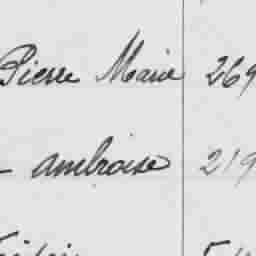 Pierre Marie 269
- ambroise 219